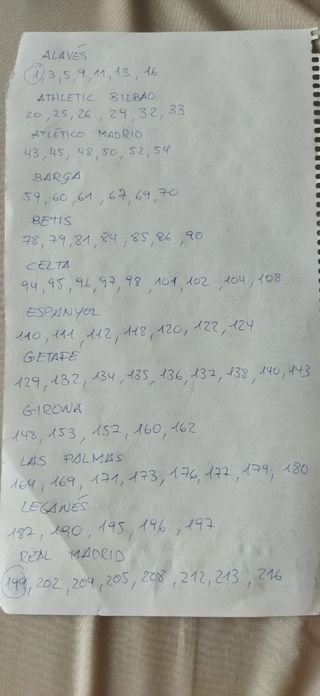 ALAVÉS
1, 3, 5, 9, 11, 13, 16
ATHLETIC BILBAO
20, 25, 26, 29, 32, 33
ATLÉTICO MADRID
43, 45, 48, 50, 52, 54
BARÇA
59, 60, 61, 67, 69, 70
BETIS
78, 79, 81, 84, 85, 86, 90
CELTA
94, 95, 96, 97, 98, 101, 102, 104, 108
ESPANYOL
110, 111, 112, 118, 120, 122, 124
GETAFE
129, 132, 134, 135, 136, 137, 138, 140, 143
GIRONA
148, 153, 157, 160, 162
LAS PALMAS
164, 169, 171, 173, 176, 177, 179, 180
LEGANÉS
187, 190, 195, 196, 197
REAL MADRID
199, 202, 204, 205, 208, 212, 213, 216